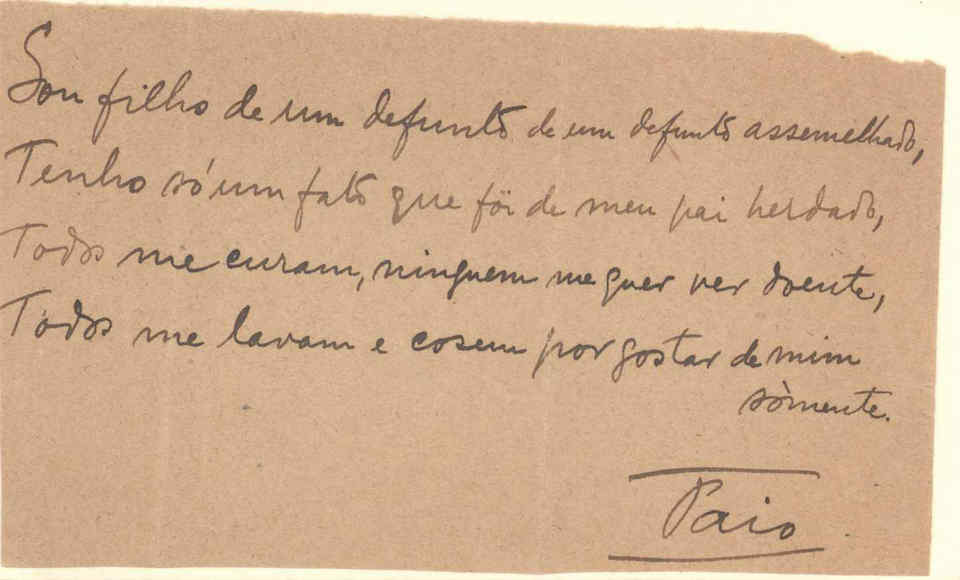 Sou filho de um defunto de um defunto assemelhado,
Tenho só um fato que fôi de meu pai herdado,
Todos me curam, ninguem me quer ver doente,
Todos me lavam e cosem por gostar de mim
sòmente.
Paio